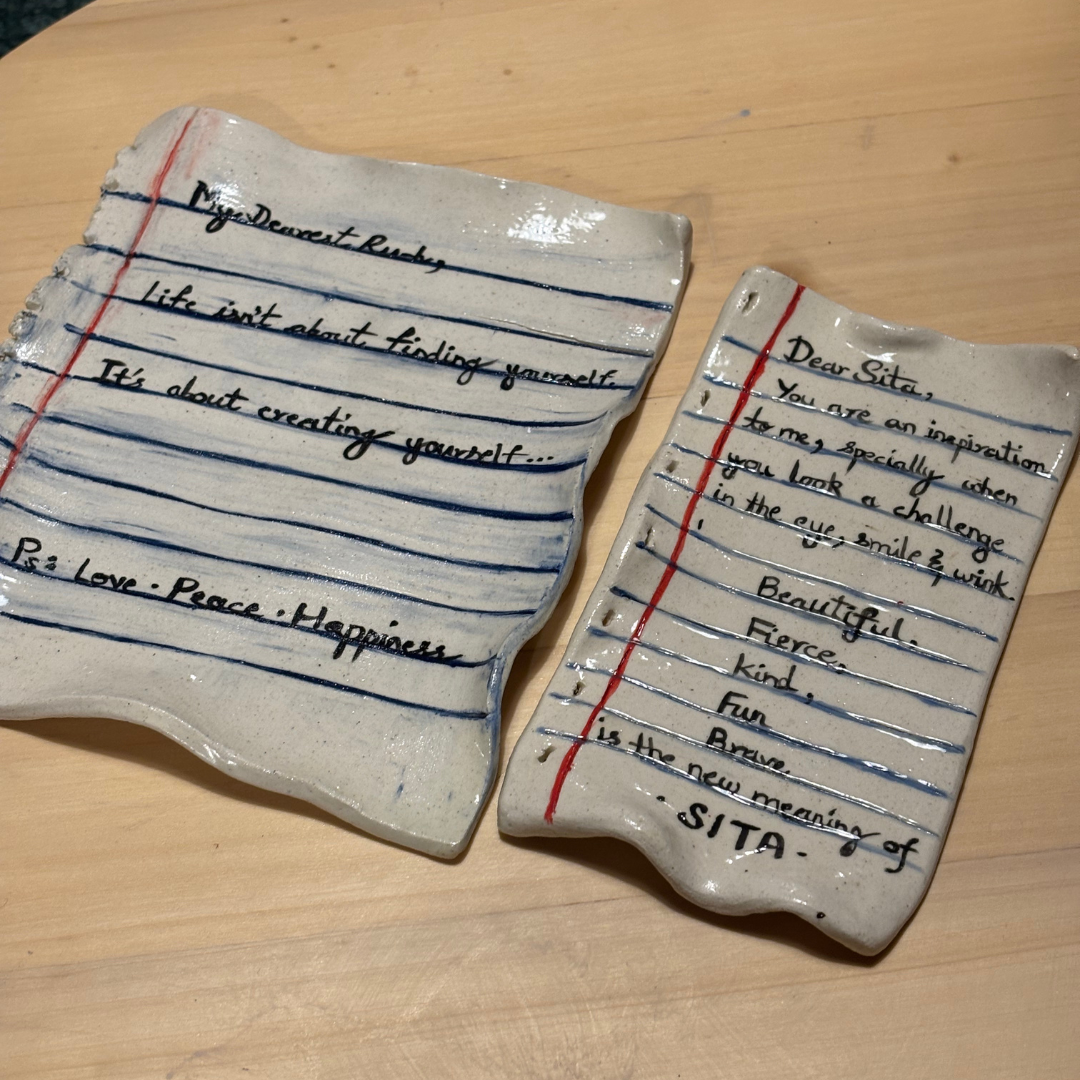 My Dearest Ruby,
Life isn't about finding yourself.
It's about creating yourself...
Ps: Love · Peace · Happiness
Dear Sita,
You are an inspiration
to me, specially when
you look a challenge
in the eye, smile & wink.
Beautiful.
Fierce.
kind,
Fun
Brave.
is the new meaning of
· SITA -